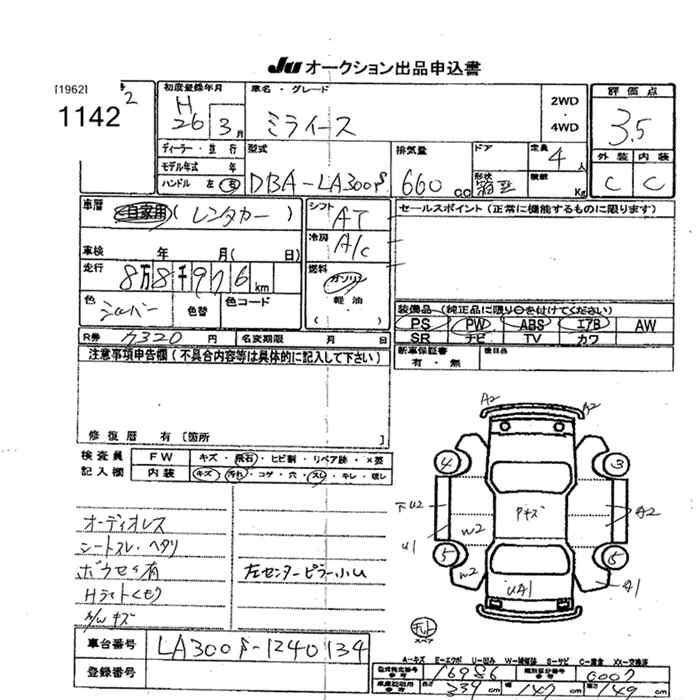 JU オークション出品申込書
[1962]
1142
2
初度登録年月
H
26 3月
車名・グレード
ミライース
2WD
・
4WD
評価点
3.5
ディーラー・並行
モデル年式 年
ハンドル 左 右
型式
DBA-LA300S
排気量
660cc
ドア
形状
箱型
定員
4人
積載
Kg
外装 内装
C C
車歴
自家用 (レンタカー)
車検 年 月(日)
走行
8万8千976km
色
シルバー
色替
色コード
シフト
AT
冷房
A/C
燃料
ガソリン
軽油
( )
セールスポイント(正常に機能するものに限ります)
装備品(純正品に限り○を付けてください)
PS PW ABS エアB AW
SR ナビ TV カワ
R券 7320円
名変期限 月 日
新車保証書
有・無
後日品
注意事項申告欄(不具合内容等は具体的に記入して下さい)
修復歴 有〔箇所 〕
検査員
記入欄
FW キズ・飛石・ヒビ割・リペア跡・×要
内装 キズ・汚れ・コゲ・穴・スレ・キレ・破レ
オーディオレス
シートスレ・ヘタリ
ドウセキ有
Hライトくもり
左センターピラー小U
A2 A2
4 3
下U2 W2 Pキズ A2
U1
5 5
W2 UA1 A1
スペア
A-キズ E-エクボ U-凹み W-補修跡 S-サビ C-腐食 XX-交換済
車台番号 LA300S-1240134
登録番号
型式指定番号 16986
類別区分番号 0007
339cm 147cm 149cm